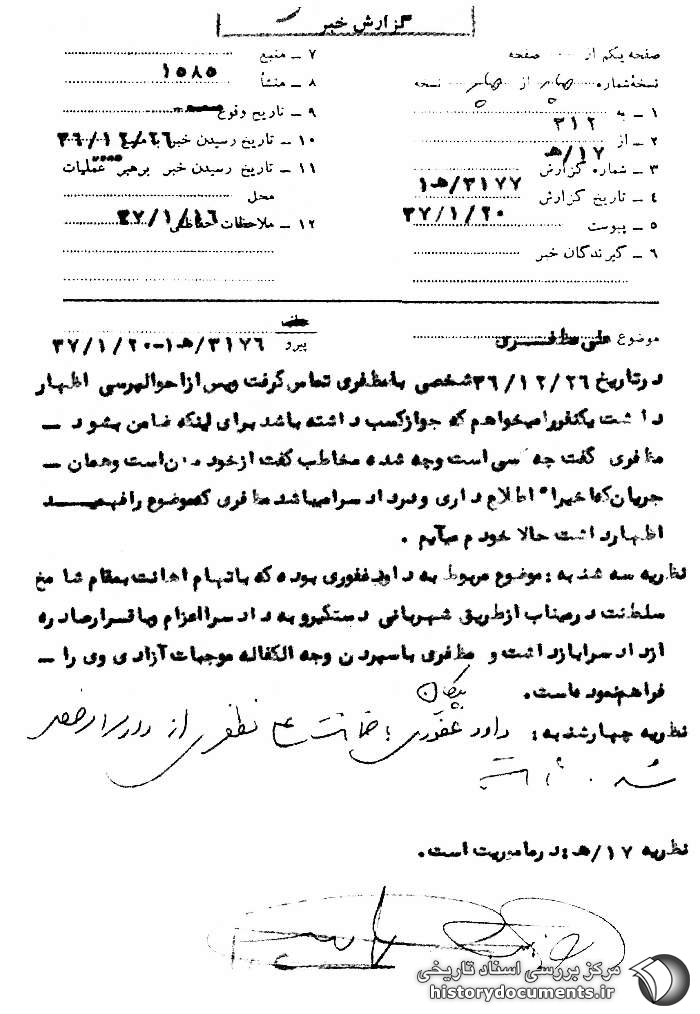 گزارش خبر
صفحه یکم از ۰۰۰ صفحه
نسخه شماره چهار از چهار نسخه
۱ ـ به ۳۱۲
۲ ـ از ۱۷/هـ
۳ ـ شماره گزارش ۳۱۷۷/هـ۱
۴ ـ تاریخ گزارش ۳۷/۱/۲۰
۵ ـ پیوست
۶ ـ گیرندگان خبر
۷ ـ منبع ۱۵۸۵
۸ ـ منشأ
۹ ـ تاریخ وقوع
۱۰ ـ تاریخ رسیدن خبر به منبع ۳۶/۱۲/۲۶
۱۱ ـ تاریخ رسیدن خبر برهبر عملیات
محل ۳۷/۱/۱۶
۱۲ ـ ملاحظات حفاظتی
موضوع علی مظفری
پیرو ۳۱۷۶/هـ۱-۳۷/۱/۲۰
درتاریخ ۳۶/۱۲/۲۶ شخصی بامظفری تماس گرفت وپس ازاحوالپرسی اظهار
داشت یکنفررامیخواهم که جوازکسب داشته باشد برای اینکه ضامن بشود ـ
مظفری گفت چه کسی است وچه شده مخاطب گفت ازخودمان است وهمان ـ
جریان که اخیراً اطلاع داری ودر دادسرامیباشد مظفری که موضوع رافهمید
اظهارداشت حالا خودم میآیم .
نظریه سه شنبه : موضوع مربوط به داود غفوری بوده که باتهام اهانت بمقام شامخ
سلطنت درمیناب ازطریق شهربانی دستگیروبه دادسرااعزام وباقرارصادره
ازدادسرابازداشت و مظفری باسپردن وجه الکفاله موجبات آزادی وی را ـ
فراهم نموده است.
نظریه چهارشنبه : داود غفوری با ضمانت علی مظفری از دادسرا مرخص
شده است
نظریه ۱۷/هـ : درماموریت است.
مرکز بررسی اسناد تاریخی
historydocuments.ir